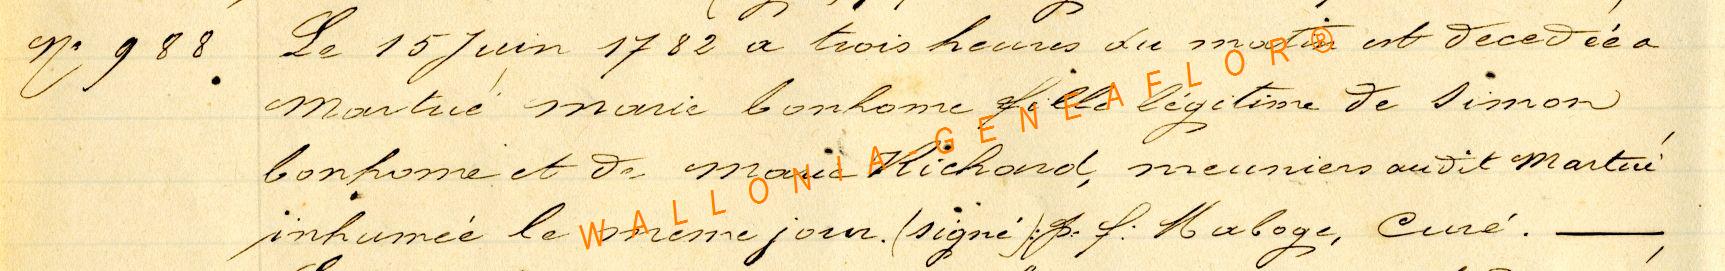 N° 988. Le 15 Juin 1782 a trois heures du matin est decedée a
Martué marie bonhome fille légitime de Simon
bonhome et de marie Richard, meuniers audit Martué
inhumée le meme jour. (signé): J. f. Maboge, Curé. —
WALLONIA-GENEAFLOR®